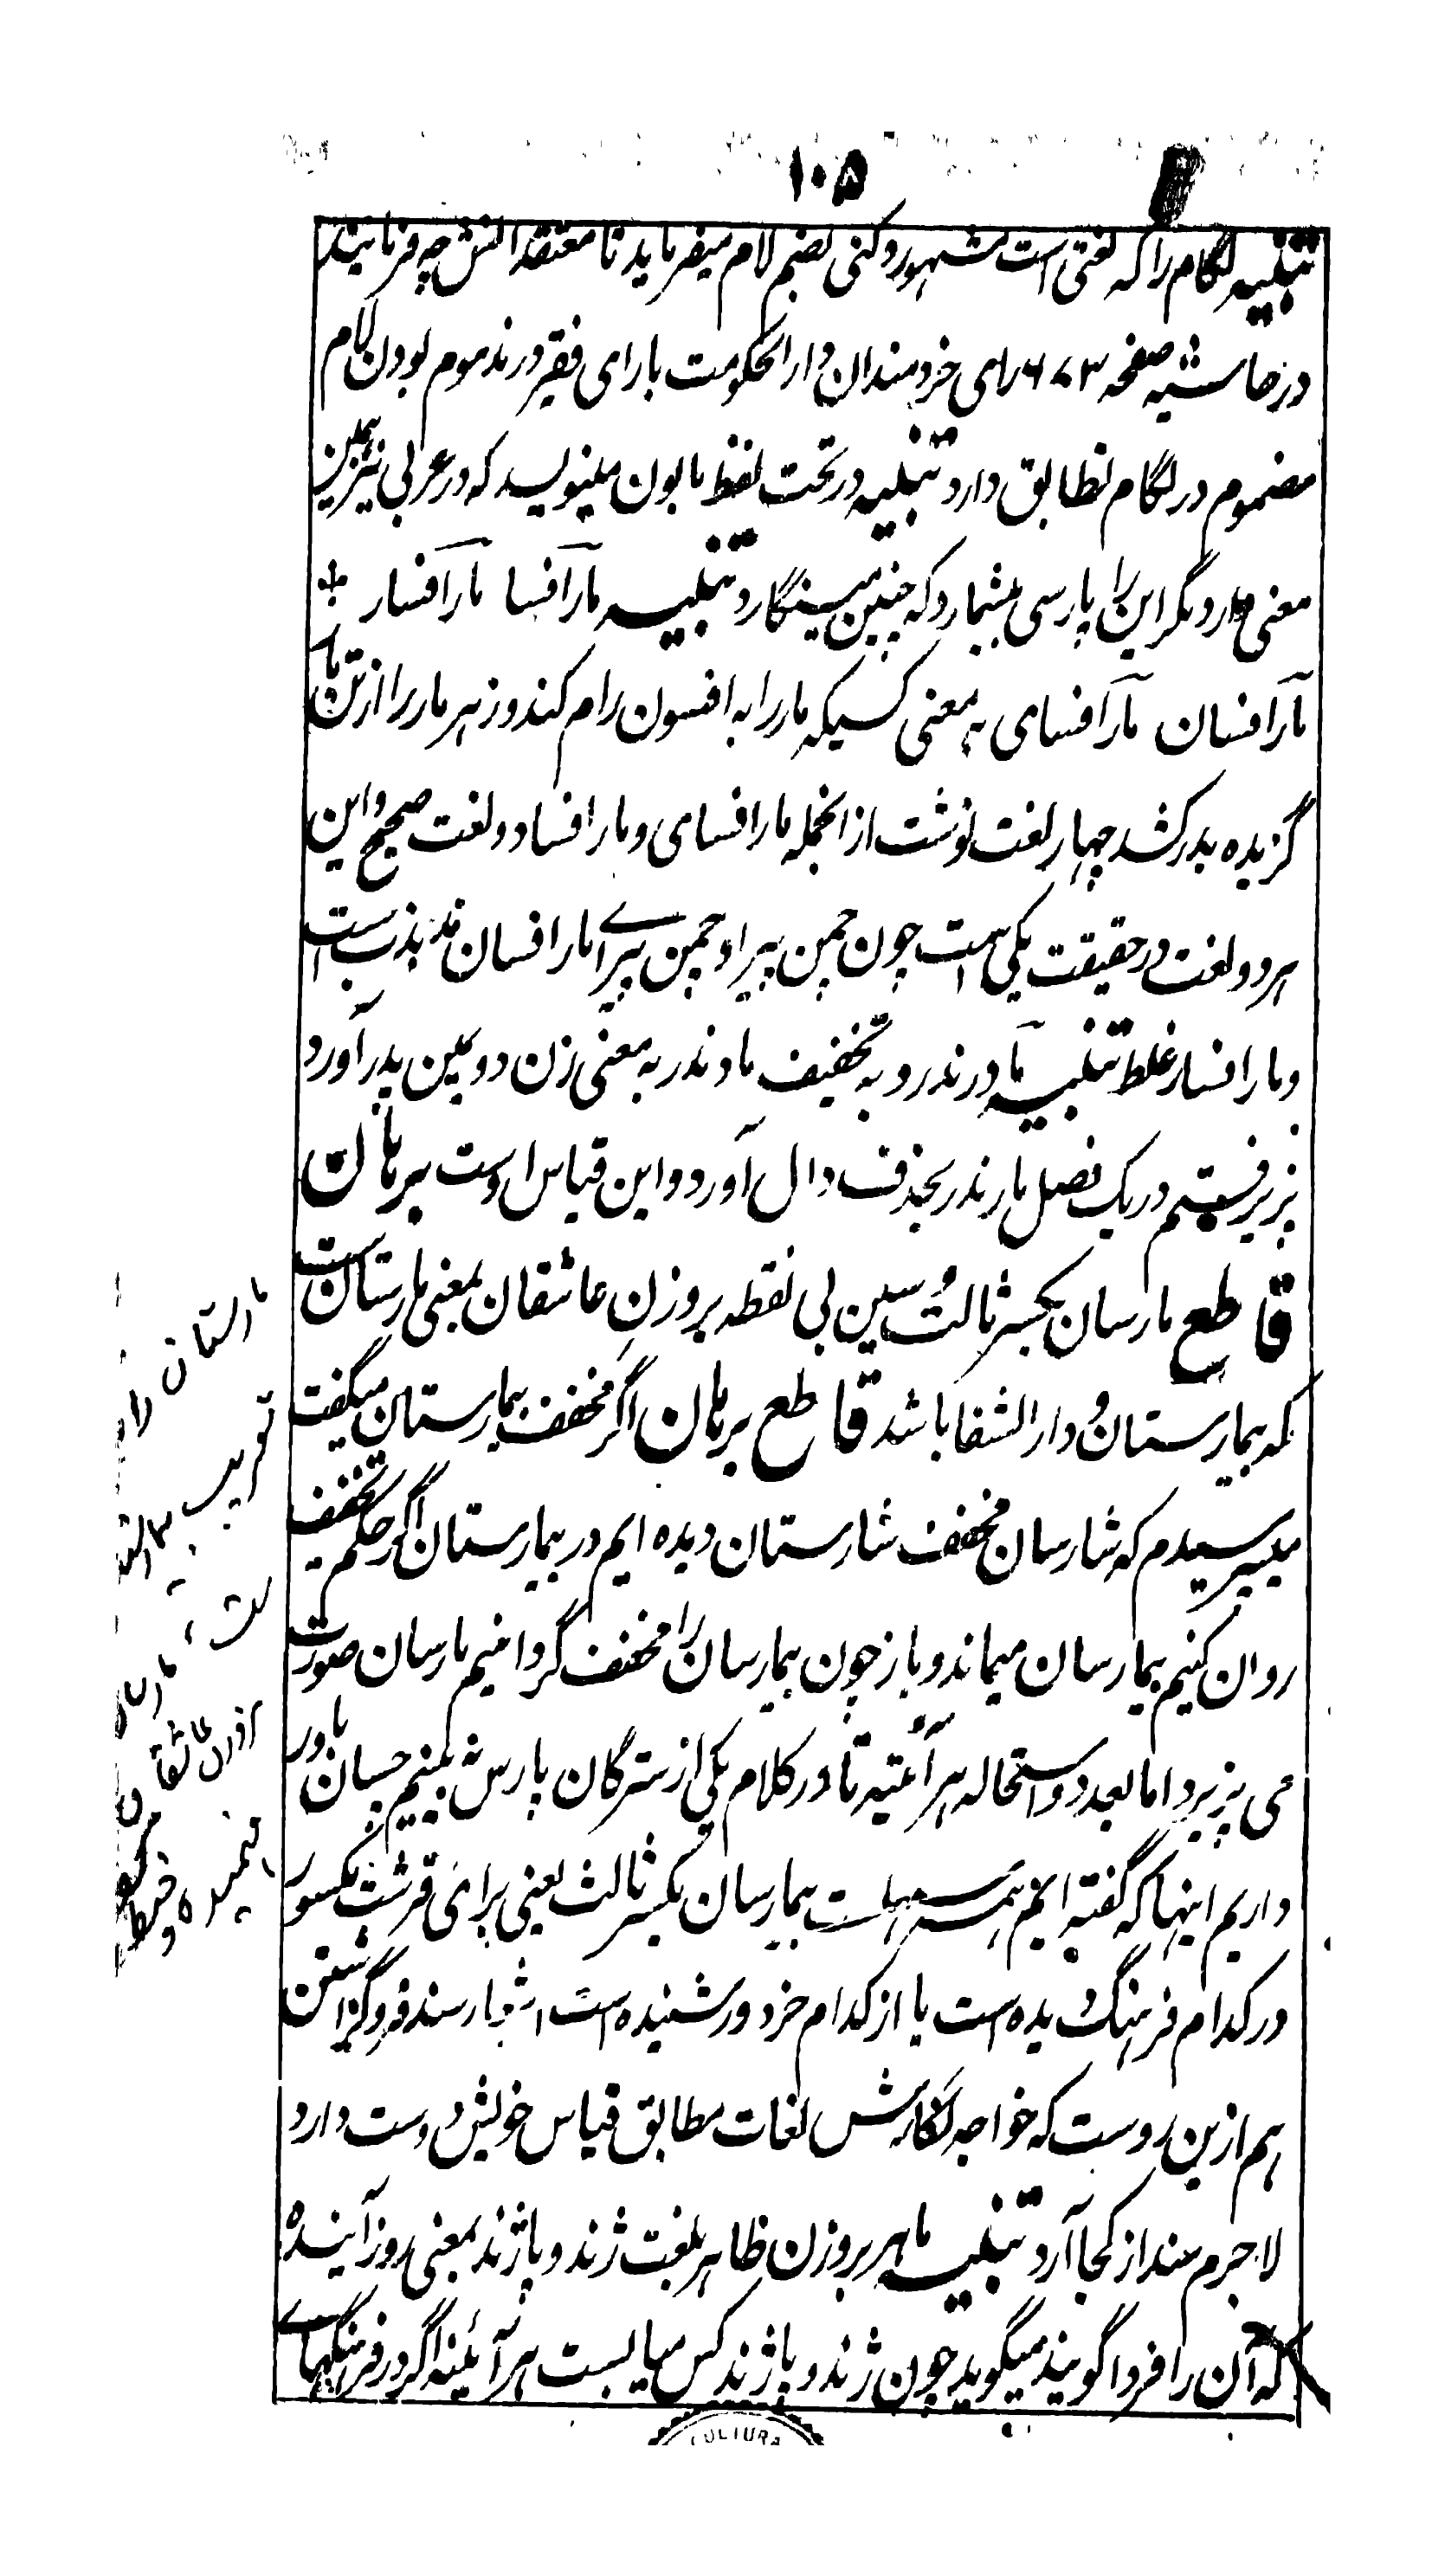 ۱۰۵
تنبیه لگام را که لغتی است مشهور و کنی بضم لام میفرماید تا معتقدانش چه فرمایند
در حاشیه صفحه ۶۷۳ رای خردمندان دارالحکومت با رای فقیر در مذموم بودن لام
مضموم در لگام تطابق دارد تنبیه در تحت لفظ مابون مینویسد که در عربی نیز همین
معنی دارد مگر این را پارسی میشمارد که چنین مینگارد تنبیه مارآفسا مارآفسار
مارآفسان مارآفسای به معنی کسیکه مار را به افسون رام کند و زهر مار را از تن مار
گزیده بدر کشد چهار لغت نوشت ازانجمله مارافسای و مارافسا دو لغت صحیح و این
هر دو لغت در حقیقت یکی است چون چمن پیرا و چمن پیرای مارافسان مذبذب است
و مارافسار غلط تنبیه مادرندر و به تخفیف مادندر به معنی زن دومین پدر آورد
پذیرفتیم در یک فصل مارندر بحذف دال آورد و این قیاس اوست برهان
قاطع مارسان بکسر ثالث و سین بی نقطه بروزن عاشقان بمعنی مارستان است
که بیمارستان و دارالشفا باشد قاطع برهان اگر مخفف بیمارستان میگفت
میپرسیدم که شارسان مخفف شارستان دیده ایم در بیمارستان اگر حکم تخفیف
روان کنیم بیمارسان میماند و باز چون بیمارسان را مخفف گردانیم مارسان صورت
می پذیرد اما بعد دو استحاله هر آئینه تا در کلام یکی از سترگان پارس نه بینیم چسان باور
داریم اینها که گفته ایم همه سهلست بیمارسان بکسر ثالث یعنی برای قرشت مکسور
در کدام فرهنگ دیده است یا از کدام خردور شنیده است اشعار سند فروگزاشتن
هم ازین روست که خواجه نگارش لغات مطابق قیاس خویش دوست دارد
لاجرم سند از کجا آرد تنبیه ماهر بروزن ظاهر بلغت ژند و پاژند بمعنی روز آینده
که آن را فردا گویند میگوید چون ژند و پاژند کس میبایست هر آئینه اگر در فرهنگهای
مارستان را
قریب
است
مارسان
بروزن عاشقان
CULTURA